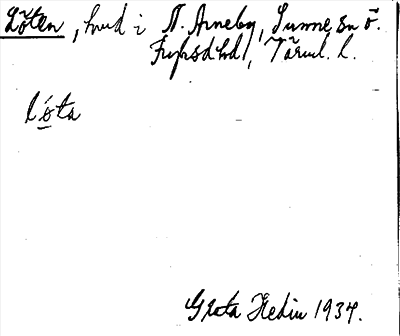 Löten, hmd i N. Arneby, Sunne sn ö.
Fryksd hd, Värml. l.
lo̱ta
Greta Hedin 1934.